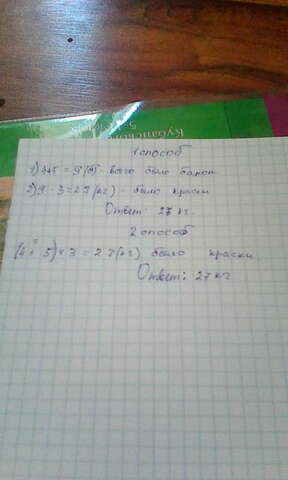 Кубанской
1 способ
1) 4+5 = 9 (б) - всего было банок
2) 9 · 3 = 27 (кг) - было краски
Ответ: 27 кг.
2 способ
(4 + 5) × 3 = 27 (кг) было краски
Ответ: 27 кг